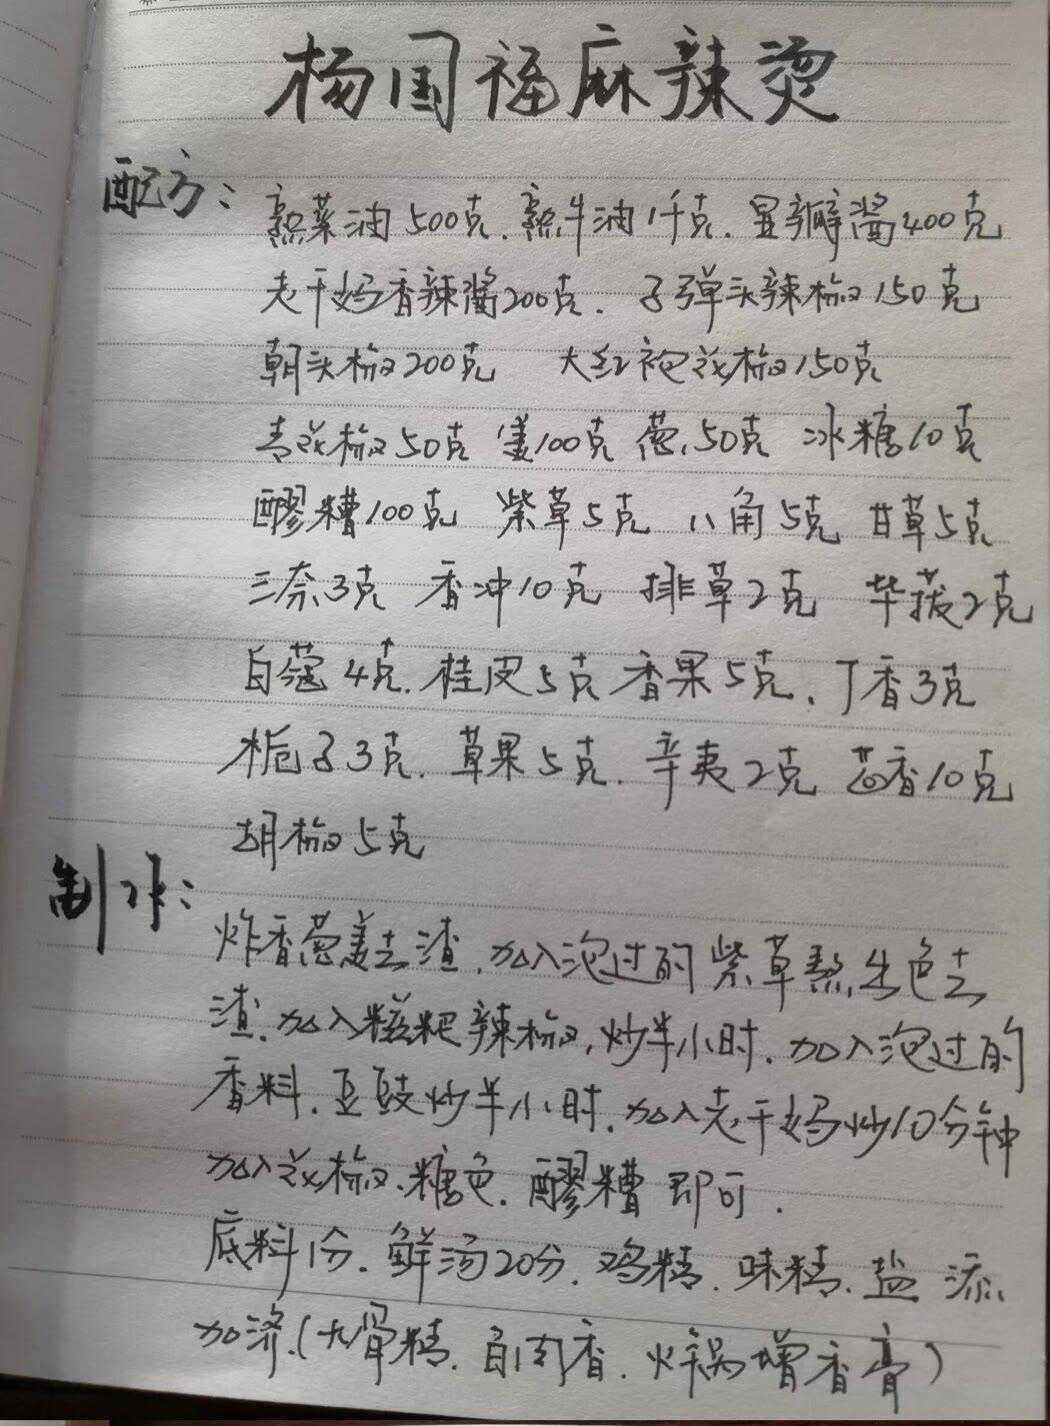 杨国福麻辣烫
配方: 熟菜油500克.熟牛油1千克.豆瓣酱400克
老干妈香辣酱200克.子弹头辣椒150克
朝头椒200克 大红袍花椒150克
青花椒50克 姜100克 葱50克 冰糖10克
醪糟100克 紫草5克 八角5克 甘草5克
三奈3克 香冲10克 排草2克 毕菝2克
白蔻4克.桂皮5克 香果5克.丁香3克
栀子3克.草果5克.辛夷2克 茴香10克
胡椒5克
制作:
炸香葱姜去渣.加入泡过的紫草熬出色去
渣.加入糍粑辣椒,炒半小时.加入泡过的
香料.豆豉炒半小时.加入老干妈炒10分钟
加入花椒.糖色.醪糟即可.
底料1份.鲜汤20分.鸡精.味精.盐 添
加济.(大骨精.自肉香.火锅增香膏)